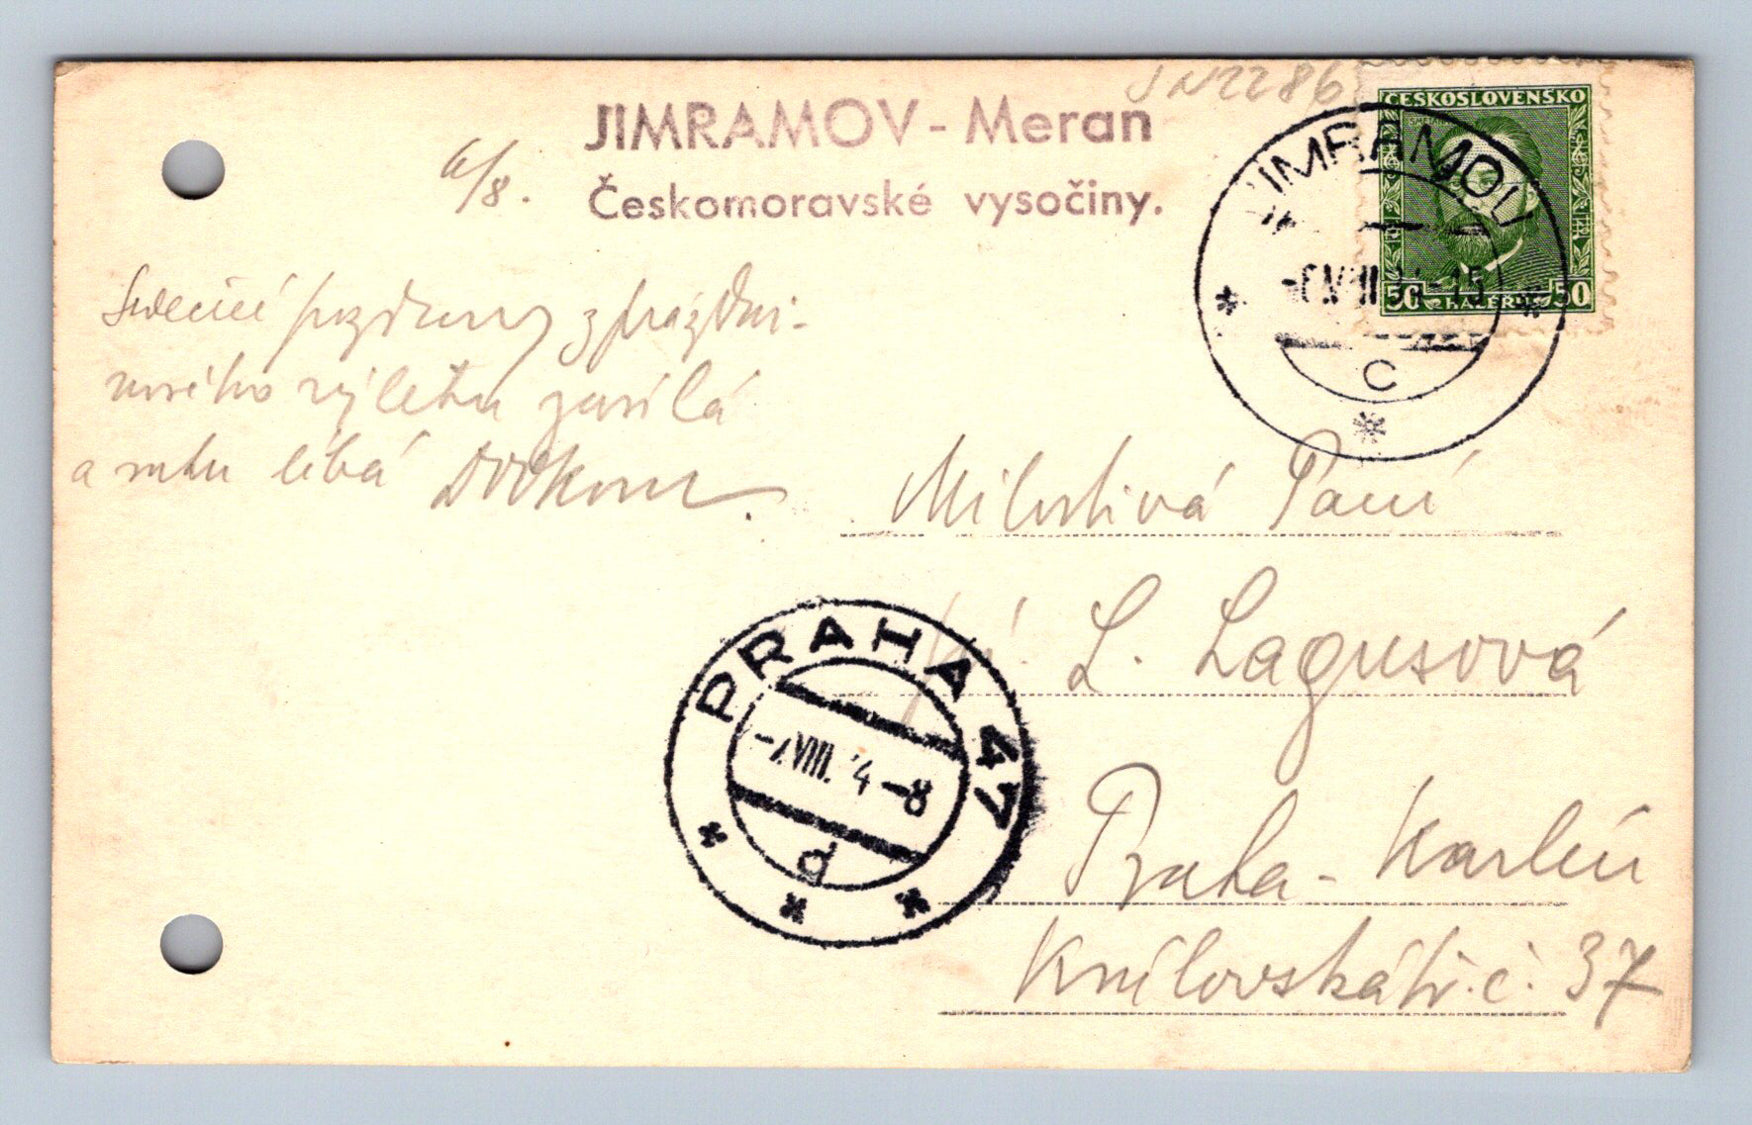 JN2286
JIMRAMOV - Meran
Českomoravské vysočiny.
6/8.
ČESKOSLOVENSKO
50 HALÉŘŮ 50
JIMRAMOV
-6.VIII. -15
C
Srdečné pozdravy z prázdni-
nového výletu zasílá
a ruku líbá
Milostivá Paní
pí. L. Lagusová
PRAHA 47
-7.VIII. 34-8
d
Praha - Karlín
Královská tř. č. 37